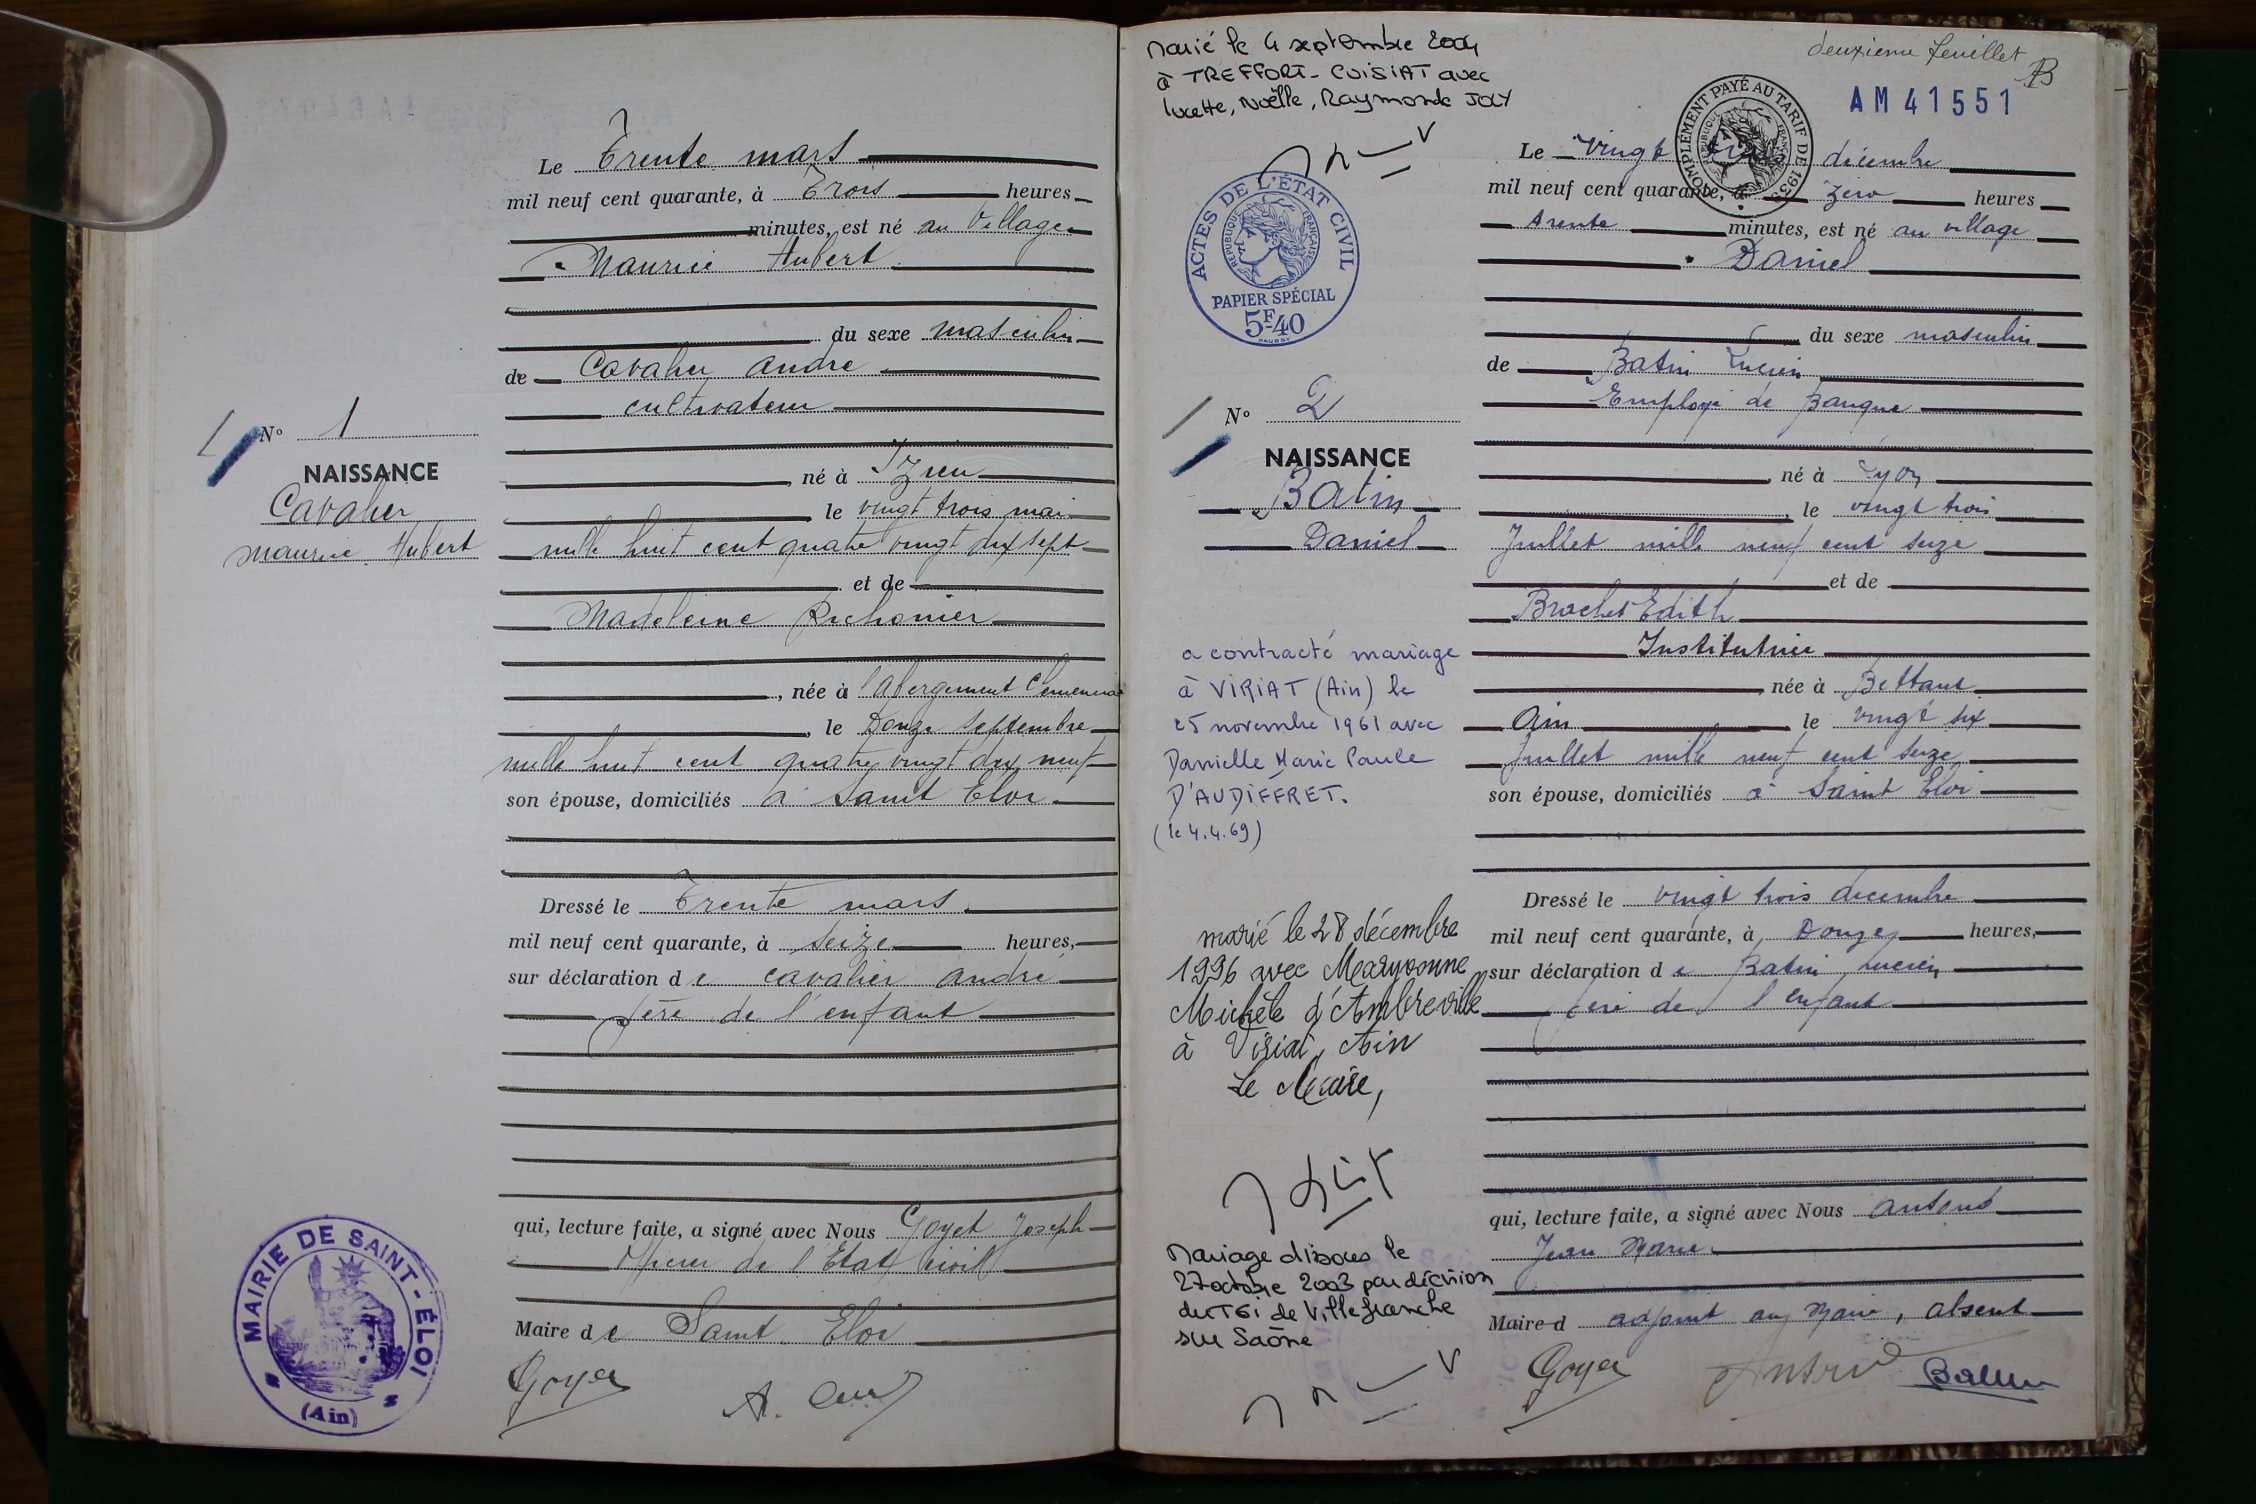 Le Trente mars
mil neuf cent quarante, à Trois heures
minutes, est né au Village
Maurice Hubert
du sexe masculin
de Cavalier André
cultivateur
né à Izieu
le vingt trois mai
mille huit cent quatre vingt dix sept
et de
Madeleine Richonier
, née à l'Abergement Clemenciat
, le Douze septembre
mille huit cent quatre vingt dix neuf
son épouse, domiciliés à Saint Eloi
Dressé le Trente mars
mil neuf cent quarante, à seize heures,
sur déclaration de cavalier andré
père de l'enfant
qui, lecture faite, a signé avec Nous Goyet Joseph
officier de l'Etat Civil
Maire de Saint Eloi
Goyet
N° 1
NAISSANCE
Cavalier
Maurice Hubert
MAIRIE DE SAINT-ÉLOI
(Ain)
Marié le 4 septembre 2004
à TREFFORT-CUISIAT avec
Lucette, Noëlle, Raymonde JOLY
ACTES DE L'ÉTAT CIVIL
RÉPUBLIQUE FRANÇAISE
PAPIER SPÉCIAL
5F40
N° 2
NAISSANCE
Batin
Daniel
a contracté mariage
à VIRIAT (Ain) le
25 novembre 1961 avec
Danielle Marie Paule
D'AUDIFFRET.
(le 4.4.69)
marié le 28 décembre
1996 avec Maryvonne
Michèle d'Ambreville
à Viriat, Ain
Le Maire,
Mariage dissous le
27 octobre 2003 par décision
du TGI de Villefranche
sur Saône
deuxième feuillet
AM41551
COMPLÉMENT PAYÉ AU TARIF DE 193
Le Vingt décembre
mil neuf cent quarante, à zéro heures
trente minutes, est né au village
Daniel
du sexe masculin
de Batin Lucien
Employé de Banque
, né à Lyon
, le vingt trois
Juillet mille neuf cent seize
et de
Brochet Edith
Institutrice
, née à Bettant
Ain le vingt six
Juillet mille neuf cent seize
son épouse, domiciliés à Saint Eloi
Dressé le vingt trois decembre
mil neuf cent quarante, à Douze heures,
sur déclaration de Batin Lucien
père de l'enfant
qui, lecture faite, a signé avec Nous
Jean Marie
Maire d adjoint au Maire, absent
Goyet